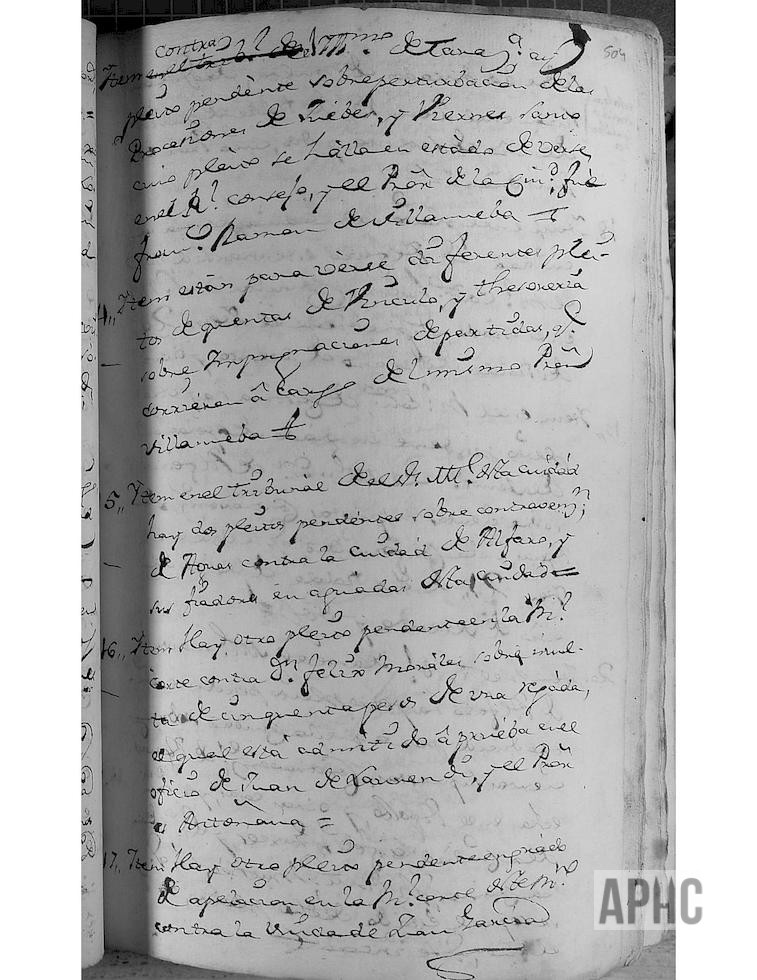 504
contra
Item en el trib.l del Ill.mo de Tarazª ay
pleito pendente sobre perturbacion de las
Procesiones de Juebes, y Viernes santo
cuio pleito se hàlla en estàdo de verse
en el R.l consejo, y el Prõr de la Ciu.d fuè
fran.co Ramon de Villanueba
4,, Item estàn para vèrse diferentes plei-
tos de quèntas de Vinculo, y thesoreria
sobre Impugnaciones de partidas, q.e
corrièren â cargo del mismo Prõr
villanueba
5,, Ytem en el tribunal del S.r Alc.e dsta ciudad
hay dos pleitos pendèntes sobre contraven.n
de contra la ciudad de Alfaro, y
sus fiadores en aguadas dsta ciudad =
16,, Item Hay otro pleito pendente en la R.l
Corte contra D.n Felix Moràles sobre mul-
ta de cinquenta pesos de una regàda,
el qual està admitido â pruèba en el
oficio de Juan de y el Prõr
es Antoñana =
17,, Item Hay otro pleito pendente en grado
de apelacion en la R.l Corte dste R.no
contra la viuda de Juan Garcia
APHC